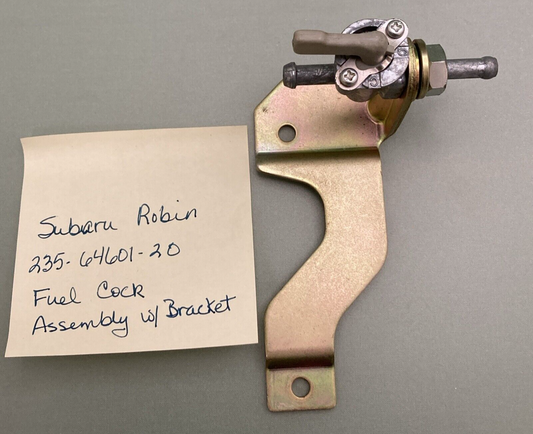 Subaru Robin
235-64601-20
Fuel Cock
Assembly w/ Bracket